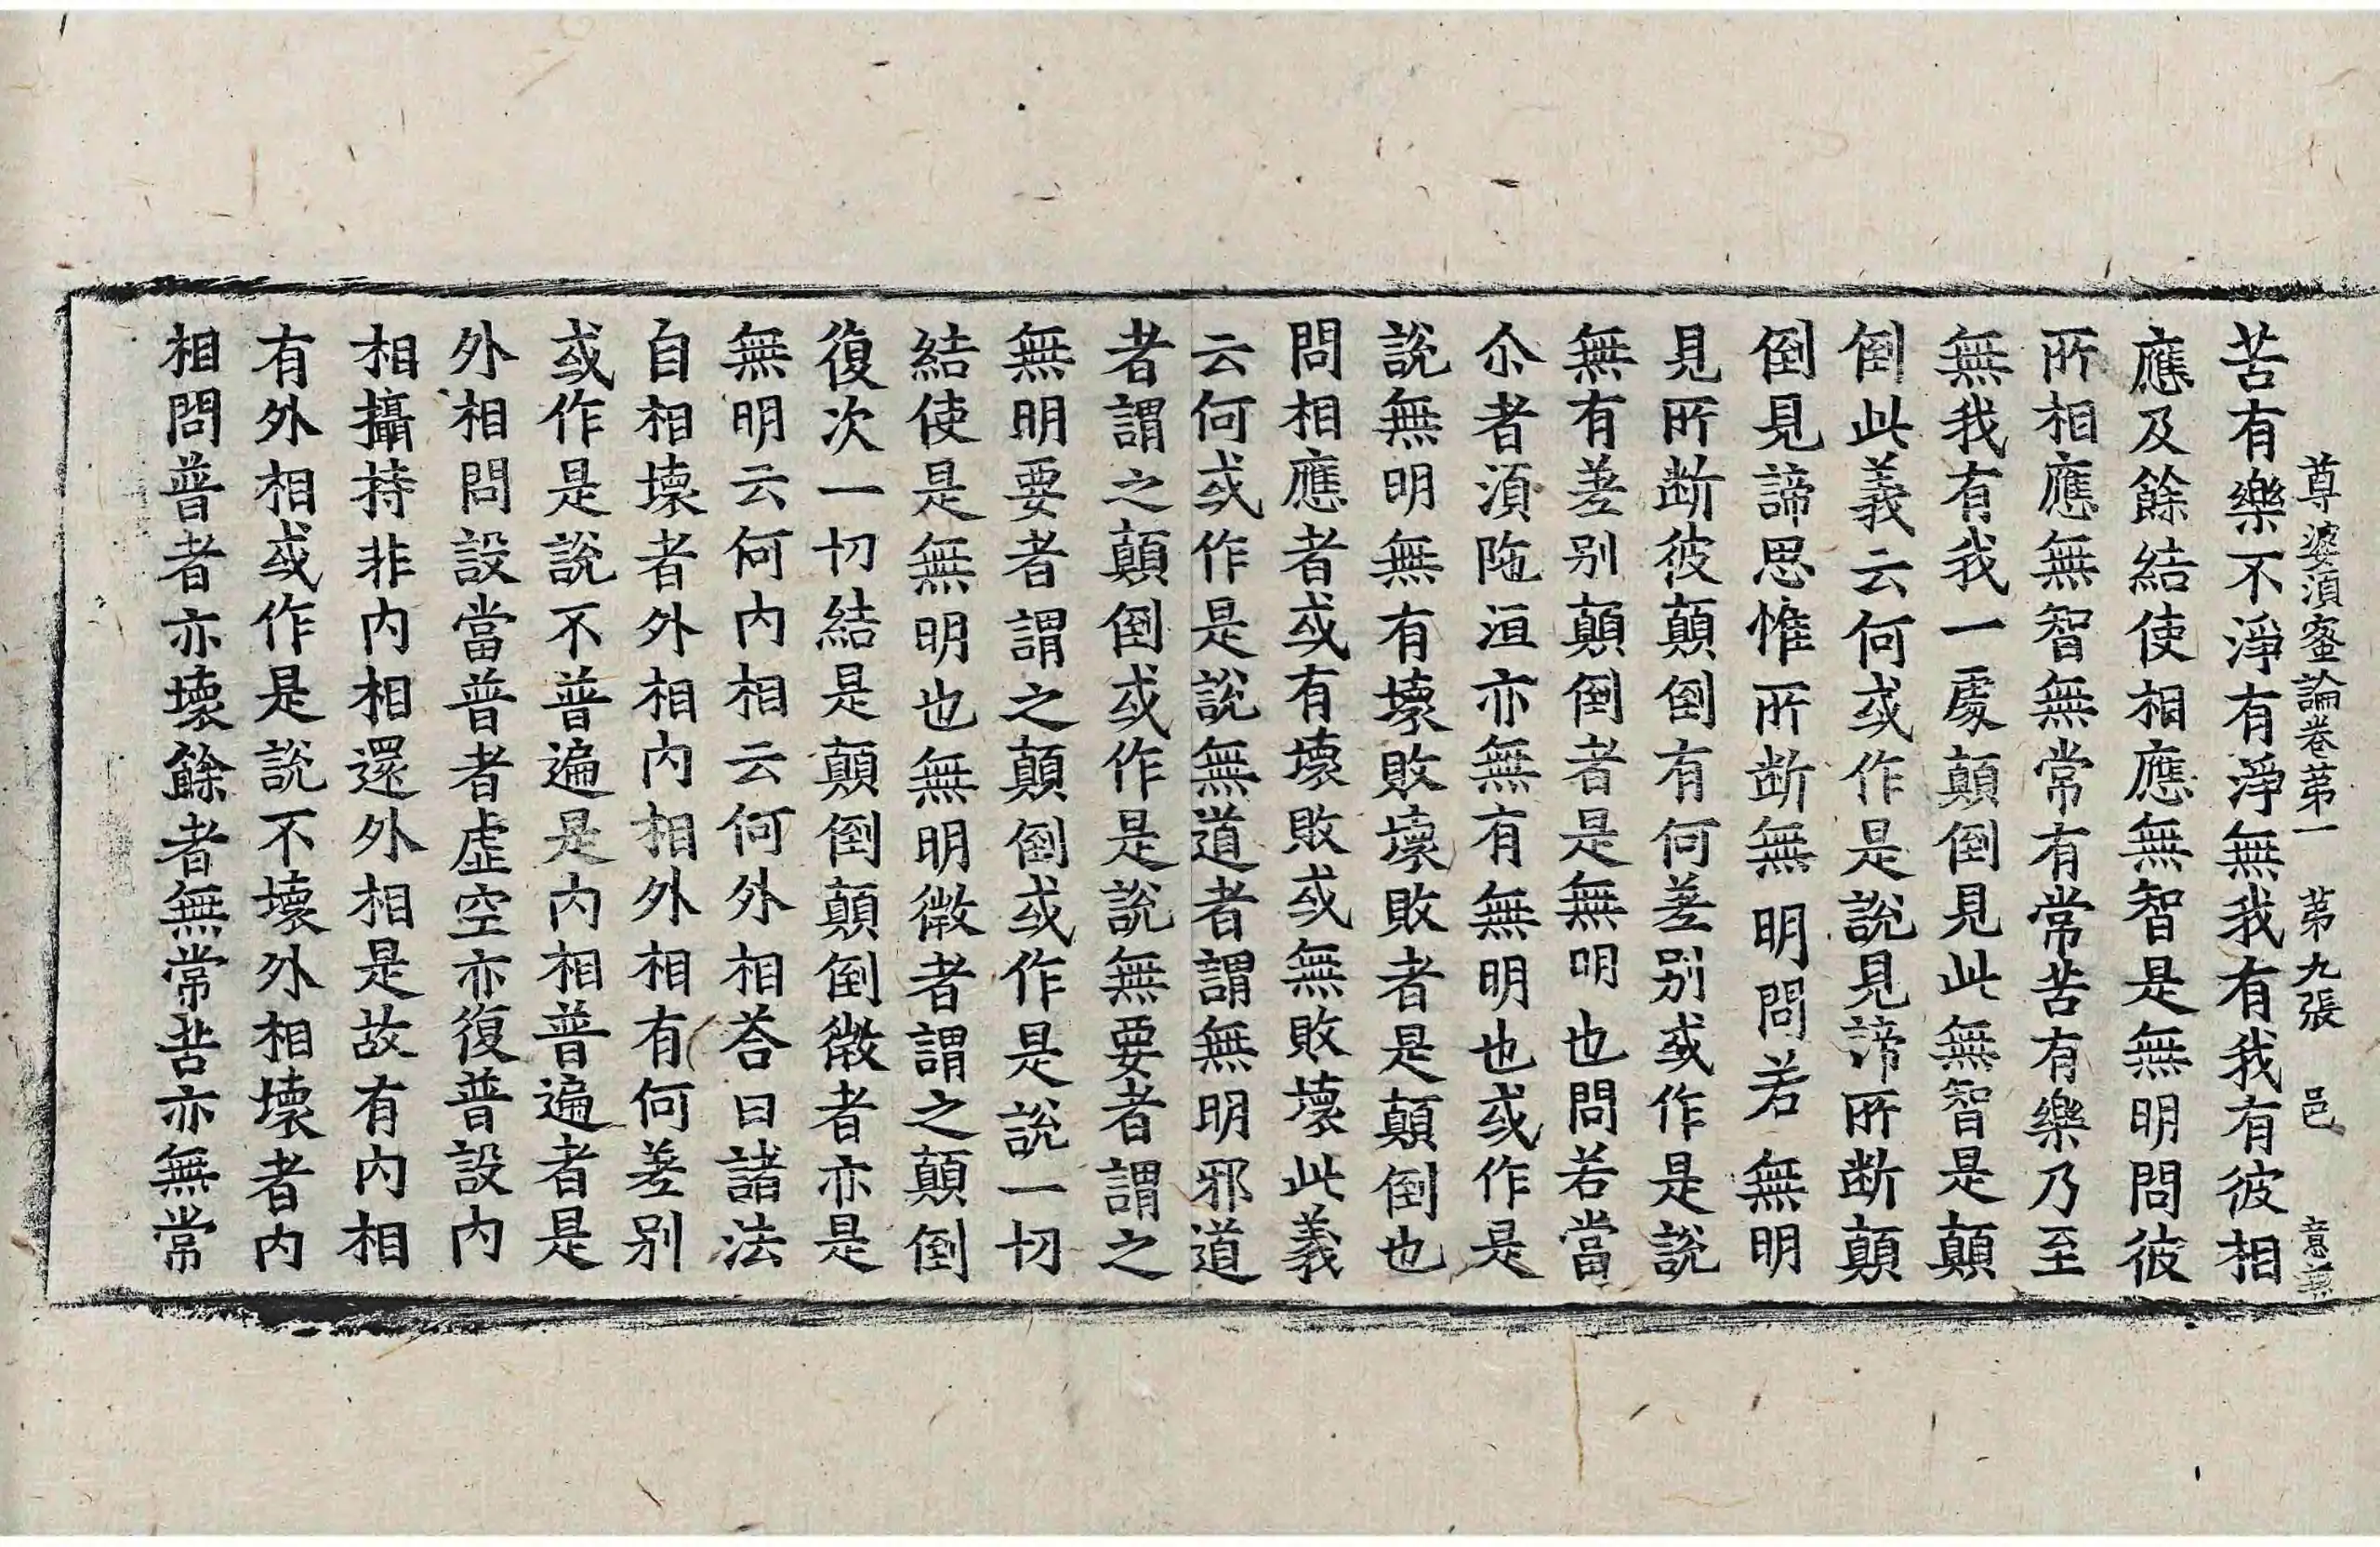 尊婆湏蜜論卷苐一 苐九張 邑 意
苦有樂不淨有淨無我有我有彼相
應及餘結使相應無智是無明問彼
所相應無智無常有常苦有樂乃至
無我有我一處顛倒見此無智是顛
倒此義云何或作是說見諦所断顛
倒見諦思惟所断無明問若無明
見所断彼顛倒有何差别或作是說
無有差别顛倒者是無明也問若當
尒者湏陁洹亦無有無明也或作是
說無明無有壞敗壞敗者是顛倒也
問相應者或有壞敗或無敗壞此義
云何或作是說無道者謂無明邪道
者謂之顛倒或作是說無要者謂之
無明要者謂之顛倒或作是說一切
結使是無明也無明微者謂之顛倒
復次一切結是顛倒顛倒微者亦是
無明云何内相云何外相荅曰諸法
自相壞者外相内相外相有何差别
或作是說不普遍是内相普遍者是
外相問設當普者虛空亦復普設内
相攝持非内相還外相是故有内相
有外相或作是說不壞外相壞者内
相問普者亦壞餘者無常苦亦無常